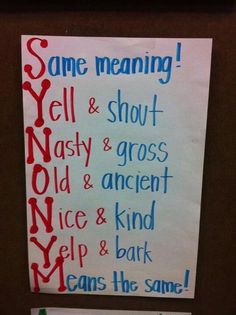 Same meaning!
Yell & shout
Nasty & gross
Old & ancient
Nice & kind
Yelp & bark
Means the same!